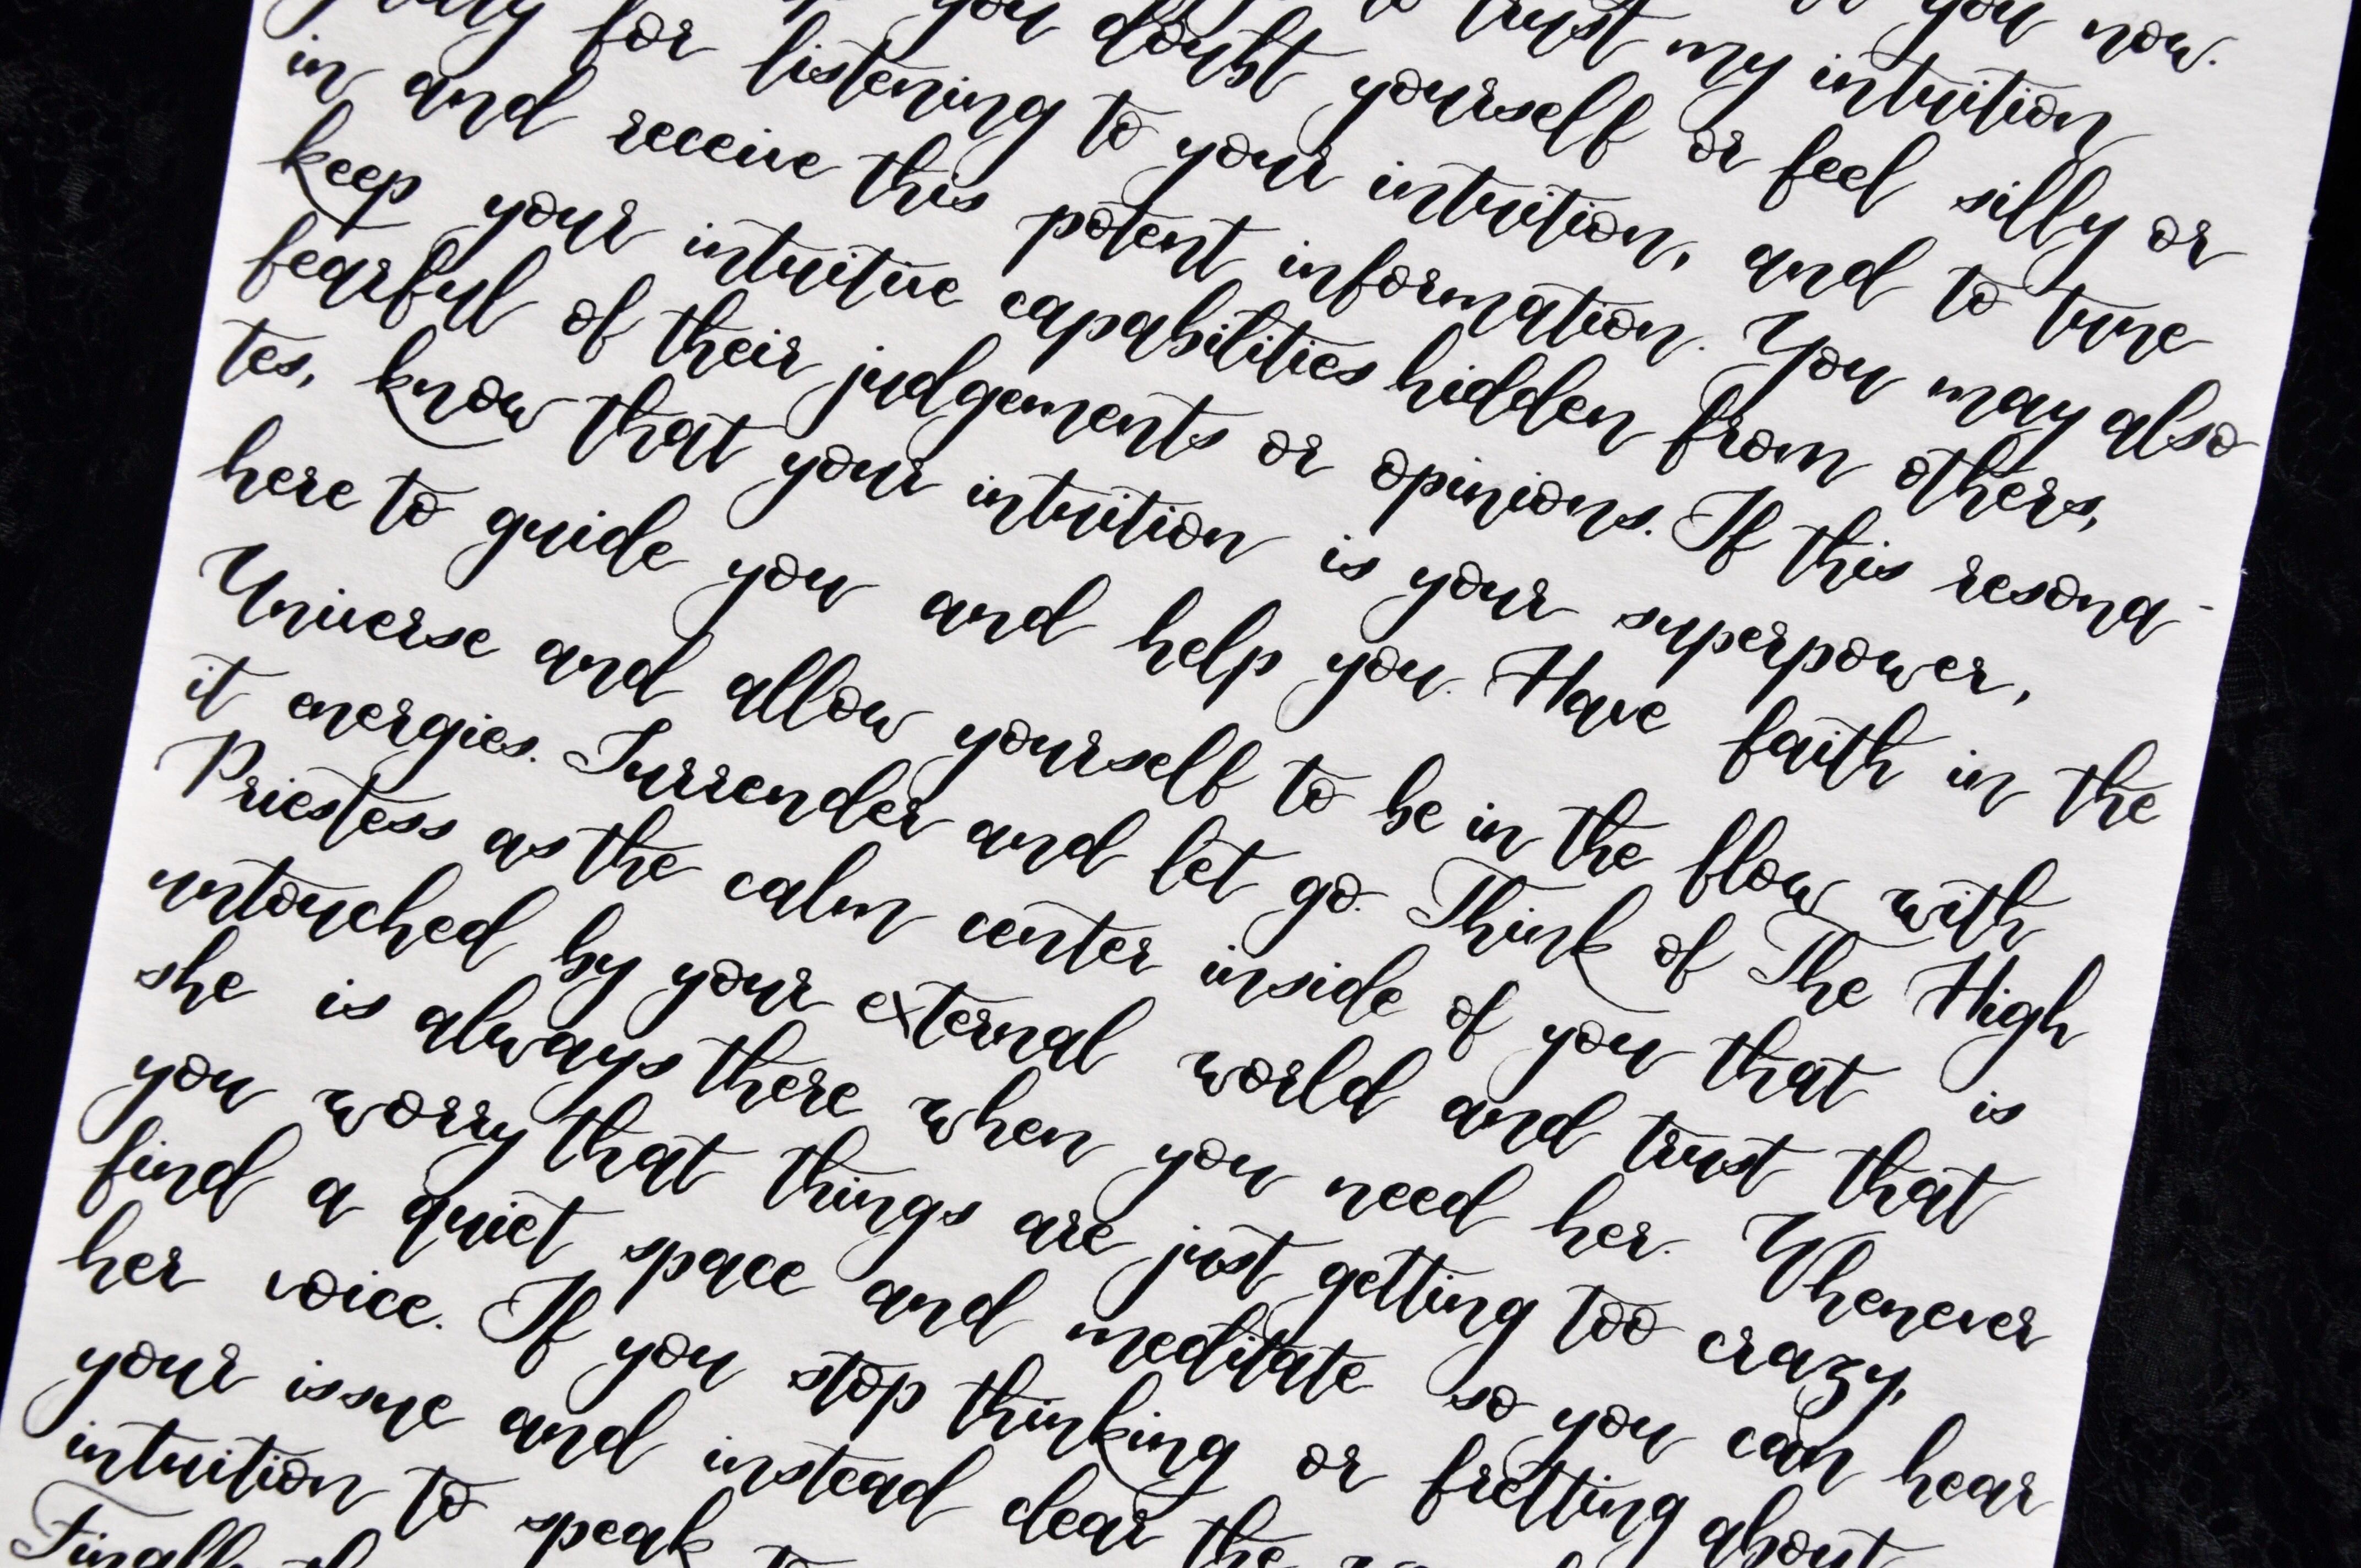 you now.
trust my intuition
you doubt yourself or feel silly or
for listening to your intuition, and to tune
in and receive this potent information. You may also
keep your intuitive capabilities hidden from others,
fearful of their judgements or opinions. If this resona-
tes, know that your intuition is your superpower,
here to guide you and help you. Have faith in the
Universe and allow yourself to be in the flow with
it energies. Surrender and let go. Think of The High
Priestess as the calm center inside of you that is
untouched by your external world and trust that
she is always there when you need her. Whenever
you worry that things are just getting too crazy,
find a quiet space and meditate so you can hear
her voice. If you stop thinking or fretting about
your issue and instead clear the
intuition to speak to
Finally